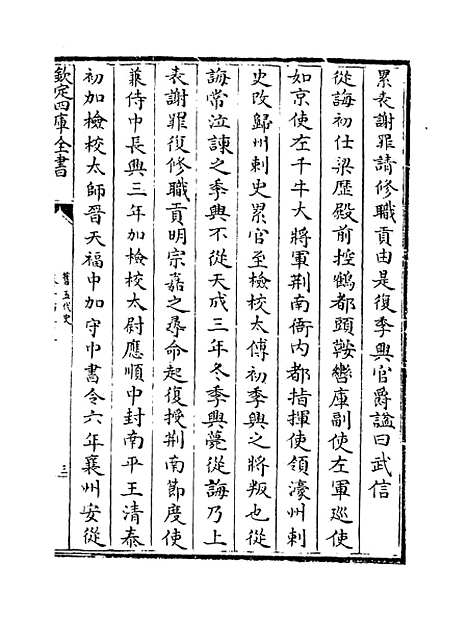 累表謝罪請修職貢由是復季興官爵諡曰武信
從誨初仕梁歷殿前控鶴都頭鞍轡庫副使左軍巡使
如京使左千牛大將軍荆南衙内都指揮使領濠州刺
史改歸州刺史累官至檢校太傅初季興之將叛也從
誨常泣諫之季興不從天成三年冬季興薨從誨乃上
表謝罪復修職貢明宗嘉之尋命起復授荆南節度使
兼侍中長興三年加檢校太尉應順中封南平王清泰
初加檢校太師晉天福中加守中書令六年襄州安從
欽定四庫全書
舊五代史
三